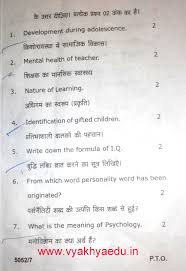 के उत्तर दीजिए। प्रत्येक प्रश्न 02 अंक का है।
1. Development during adolescence. 2
किशोरावस्था में सामाजिक विकास।
2. Mental health of teacher. 2
शिक्षक का मानसिक स्वास्थ्य
3. Nature of Learning. 2
अधिगम का स्वरूप (प्रकृति)
4. Identification of gifted children. 2
प्रतिभाशाली बालकों की पहचान।
5. Write down the formula of I.Q. 2
बुद्धि लब्धि ज्ञात करने का सूत्र लिखिए।
6. From which word personality word has been
originated? 2
पर्सनैलिटी शब्द की उत्पत्ति किस शब्द से हुई?
7. What is the meaning of Psychology. 2
मनोविज्ञान का क्या अर्थ हैं?
5052/7 P.T.O.
www.vyakhyaedu.in